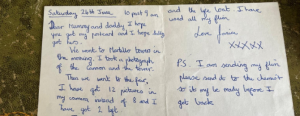 Saturday 24th June 20 past 9 am
Dear Mummy and daddy I hope
you got my postcard and I hope daddy
got his.
We went to Morbillo tower in
the morning. I took a photograph
of the cannon and the tower.
Then we went to the fair,
I have got 12 pictures in
my camera instead of 8 and I
have got 2 left
and the one left I have
used all my film
Love from
xxxxxx
P.S. I am sending my film
please send it to the chemist
so it may be ready before I
get back